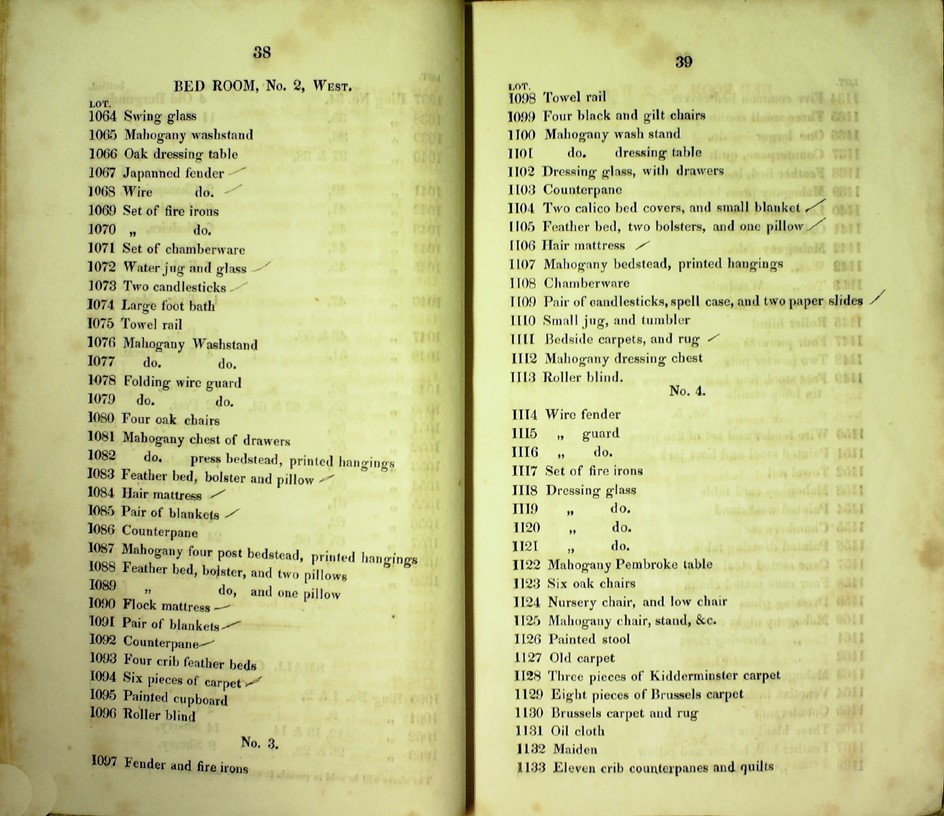 38
BED ROOM, No. 2, West.
LOT.
1064 Swing glass
1065 Mahogany washstand
1066 Oak dressing table
1067 Japanned fender
1068 Wire do.
1069 Set of fire irons
1070 „ do.
1071 Set of chamberware
1072 Water jug and glass
1073 Two candlesticks
1074 Large foot bath
1075 Towel rail
1076 Mahogany Washstand
1077 do. do.
1078 Folding wire guard
1079 do. do.
1080 Four oak chairs
1081 Mahogany chest of drawers
1082 do. press bedstead, printed hangings
1083 Feather bed, bolster and pillow
1084 Hair mattress
1085 Pair of blankets
1086 Counterpane
1087 Mahogany four post bedstead, printed hangings
1088 Feather bed, bolster, and two pillows
1089 „ do, and one pillow
1090 Flock mattress
1091 Pair of blankets
1092 Counterpane
1093 Four crib feather beds
1094 Six pieces of carpet
1095 Painted cupboard
1096 Roller blind
No. 3.
1097 Fender and fire irons
39
LOT.
1098 Towel rail
1099 Four black and gilt chairs
1100 Mahogany wash stand
1101 do. dressing table
1102 Dressing glass, with drawers
1103 Counterpane
1104 Two calico bed covers, and small blanket
1105 Feather bed, two bolsters, and one pillow
1106 Hair mattress
1107 Mahogany bedstead, printed hangings
1108 Chamberware
1109 Pair of candlesticks, spell case, and two paper slides
1110 Small jug, and tumbler
1111 Bedside carpets, and rug
1112 Mahogany dressing chest
1113 Roller blind.
No. 4.
1114 Wire fender
1115 „ guard
1116 „ do.
1117 Set of fire irons
1118 Dressing glass
1119 „ do.
1120 „ do.
1121 „ do.
1122 Mahogany Pembroke table
1123 Six oak chairs
1124 Nursery chair, and low chair
1125 Mahogany chair, stand, &c.
1126 Painted stool
1127 Old carpet
1128 Three pieces of Kidderminster carpet
1129 Eight pieces of Brussels carpet
1130 Brussels carpet and rug
1131 Oil cloth
1132 Maiden
1133 Eleven crib counterpanes and quilts